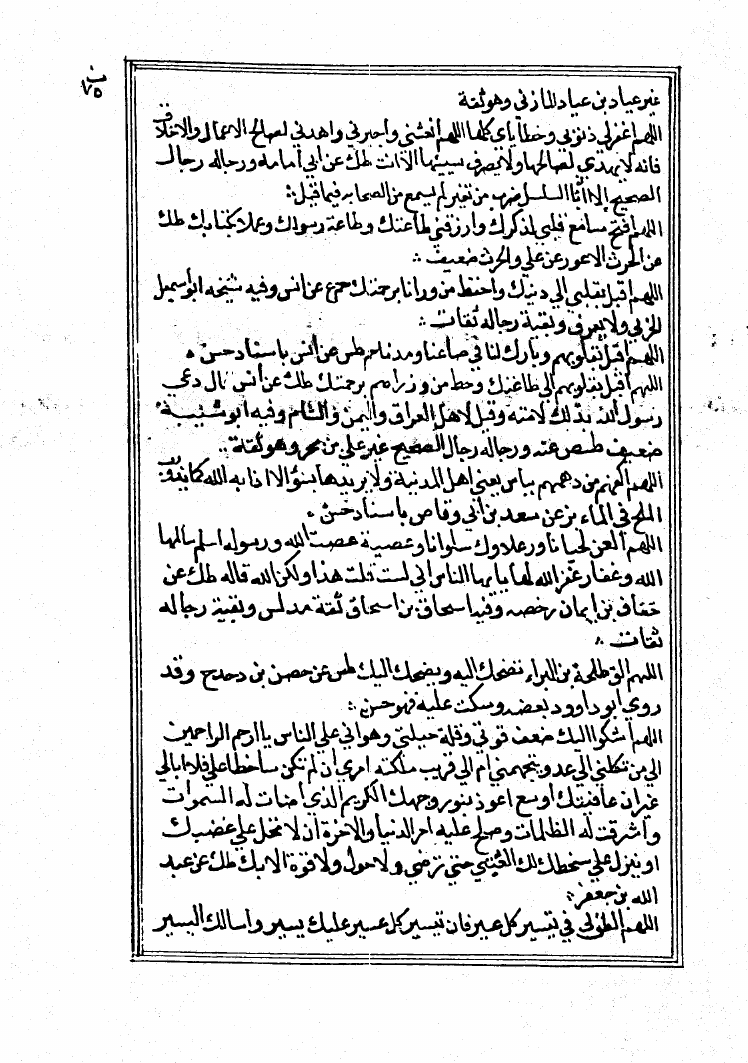 ب
٧٥
غير عباد بن عباد المازني وهو ثقة
اللهم اغفر لي ذنوبي وخطاياي كلها اللهم أنعشني وأجبرني واهدني لصالح الاعمال والاخلاق
فانه لا يهدي لصالحها ولا يصرف سيئها الا انت طك عن ابي أمامه ورجاله رجال
الصحيح الا ان السلسل ضرب من نفير لم يسمع من الصحابه فيما قيل
اللهم افتح مسامع قلبي لذكرك وارزقني طاعتك وطاعة رسولك وعملا بكتابك طك
عن الحرث الاعور عن علي والحرث ضعيف
اللهم اقبل بقلبي الي دينك واحفظ من ورانا برحمتك عن انس وفيه شيخه ابو اسمعيل
ولا يعرف وبقية رجاله ثقات
اللهم اقبل بقلوبهم وبارك لنا في صاعنا ومدنا حم طس عن أنس باسناد حسن
اللهم اقبل بقلوبهم الي طاعتك وحط من وراهم برحمتك طك عن أنس قال دعي
رسول الله بذلك لامته وقبل لاهل العراق واليمن والشام وفيه ابو شيبة
ضعيف طص عنه ورجاله رجال الصحيح غير علي بن بحر وهو ثقة
اللهم اكفهم من دهمهم بباس يعني اهل المدينة ولا يريدها بسؤ الا اذابه الله كما يذوب
الملح في الماء بز عن سعد بن أبي وقاص باسناد حسن
اللهم العن لحيانا ورعلا وذكوانا وعصية عصت الله ورسوله اسلم سالمها
الله وغفار غفر الله لها يا يها الناس اني لست قلت هذا ولكن الله قاله طك عن
خفاف بن إيمان بن رخصه وفيه اسحاق بن اسحاق ثقة مدلس وبقية رجاله
ثقات
اللهم الق طلحة بن البراء تضحك اليه ويضحك اليك طس عن حصن بن دحدح وقد
روي ابو داوود بعضه وسكت عليه فهو حسن
اللهم أشكوا اليك ضعف قوتي وقلة حيلتي وهواني علي الناس يا ارحم الراحمين
الي من تكلني الي عدو يتجهمني أم الي قريب ملكته امري ان لم تكن ساخطا علي فلا ابالي
غير ان عافيتك أوسع اعوذ بنور وجهك الكريم الذي أضات له السموات
وأشرقت له الظلمات وصلح عليه امر الدنيا والاخرة أن لا تحل علي غضبك
او ينزل علي سخطك لك العتبي حتي ترضي ولا حول ولا قوة الا بك طك عن عبد
الله بن جعفر
اللهم الطف لي في تيسير كل عسير فان تيسير كل عسير عليك يسير وأسالك اليسير